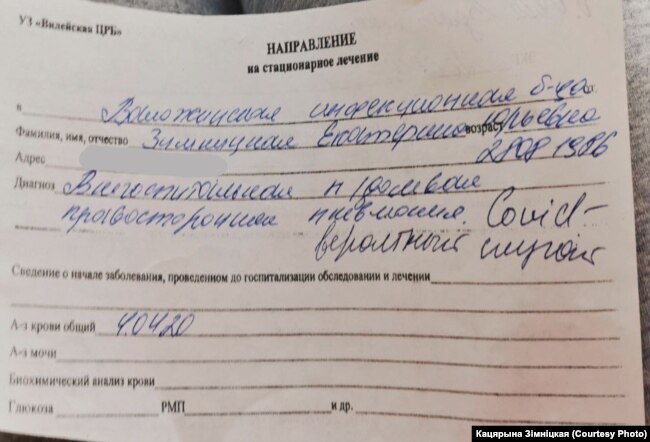 УЗ «Вилейская ЦРБ»
НАПРАВЛЕНИЕ
на стационарное лечение
в Валожинская инфекционная б-ца
Фамилия, имя, отчество Зимницкая Екатерина возраст Юрьевна
Адрес 28 08 1986
Диагноз Внегоспитальная долевая
правосторонняя пневмония. Covid-
вероятный случай
Сведение о начале заболевания, проведенном до госпитализации обследовании и лечении
А-з крови общий 4.04.20
А-з мочи
Биохимический анализ крови
Глюкоза РМП и др.
Кацярына Зімніцкая (Courtesy Photo)